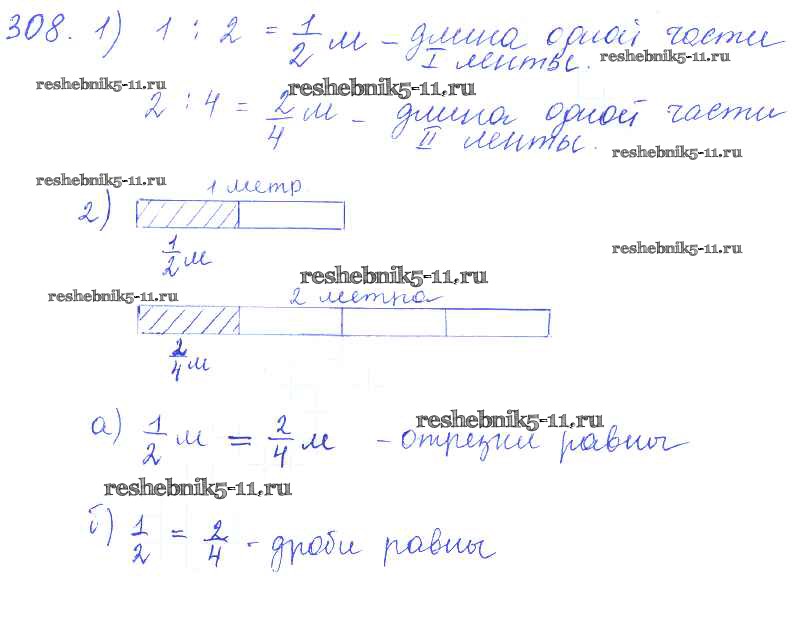 308. 1) 1 : 2 = 1/2 м – длина одной части
I ленты.
reshebnik5-11.ru reshebnik5-11.ru reshebnik5-11.ru
2 : 4 = 2/4 м – длина одной части
II ленты.
reshebnik5-11.ru
reshebnik5-11.ru
1 метр
2)
1/2 м
reshebnik5-11.ru
reshebnik5-11.ru
reshebnik5-11.ru
2 метра
2/4 м
reshebnik5-11.ru
а) 1/2 м = 2/4 м – отрезки равны
reshebnik5-11.ru
б) 1/2 = 2/4 – дроби равны